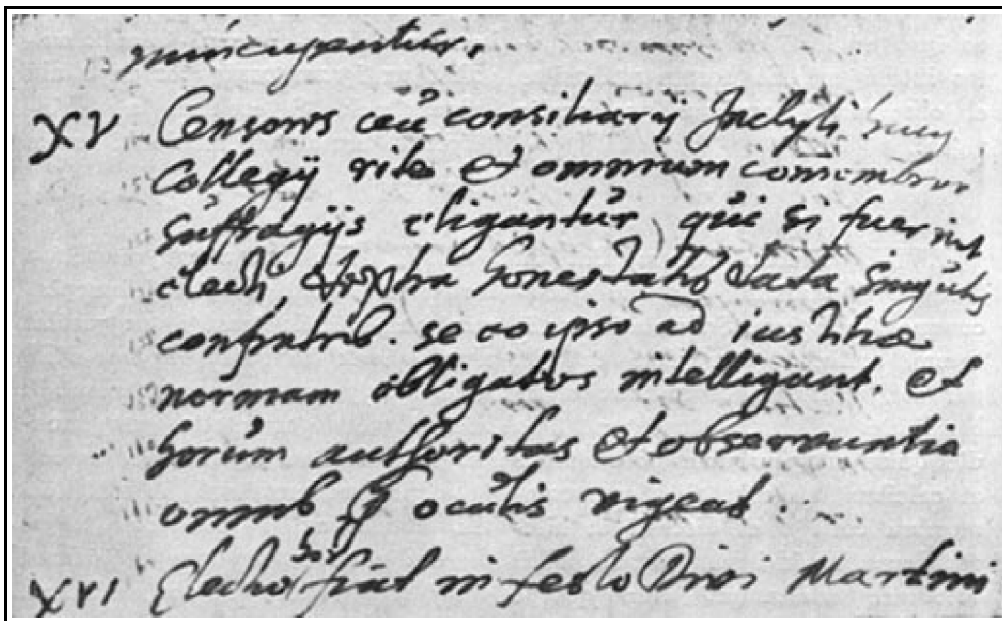 nuncupentur.
XV Censores ceu consiliarij Inclyti huius
Collegij rite et omnium comembror
suffragijs eligantur, qui si fuerint
electi, dextra honestatis data singulis
confratrib. se eo ipso ad iustitiae
normam obligatos intelligant. et
horum authoritas et observantia
omnib prę oculis vigeat.
XVI Electio hor fiat in festo Divi Martini